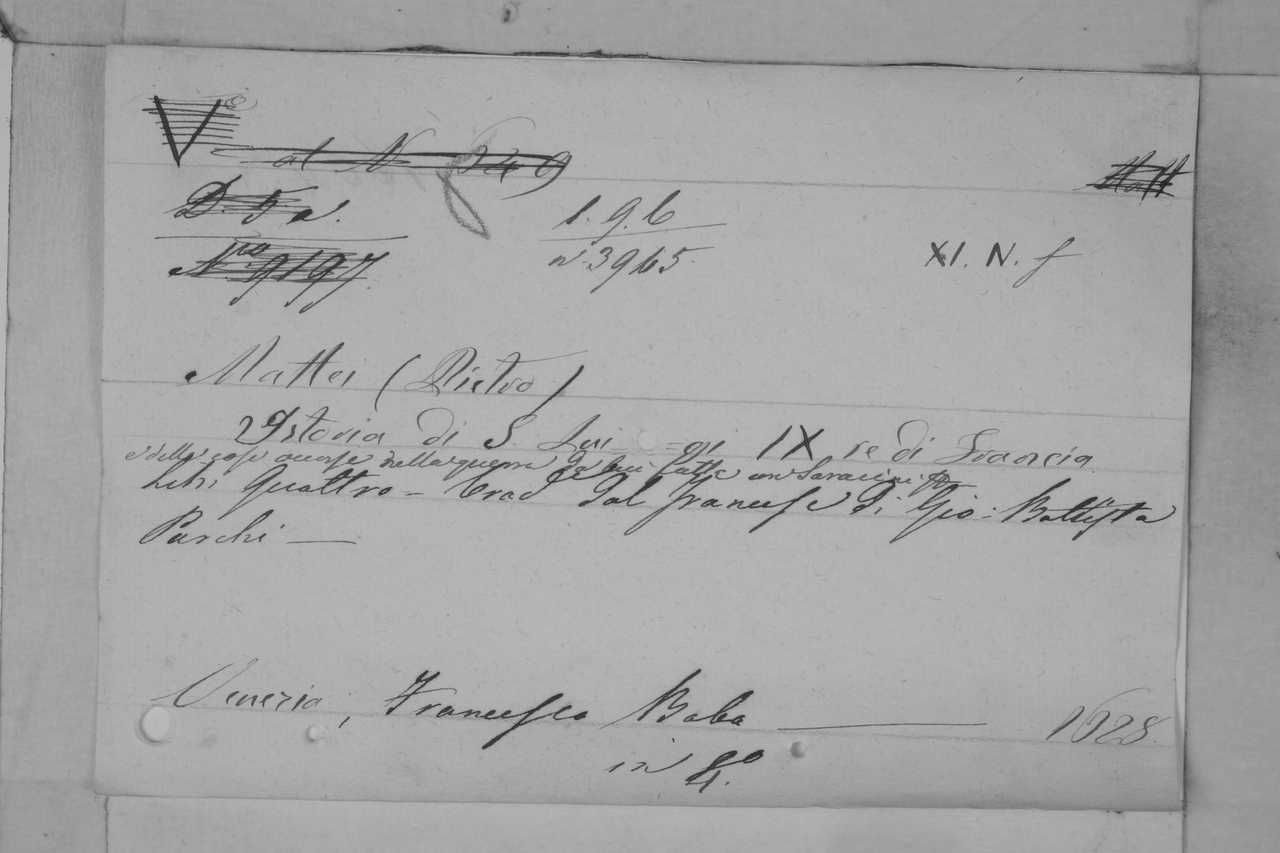 V
al N 249
D. 5 a.
1. 9. 6
N.ro 9197.
n. 3965.
XI. N. f
Mattei (Pietro)
Istoria di S. Lui=gi IX re di Francia
e delle cose occorse nella guerra da lui fatta con Saracini
Libri Quattro - Trad dal francese di Gio: Battista
Parchi —
Venezia, Francesco Baba — 1628.
in 4.o